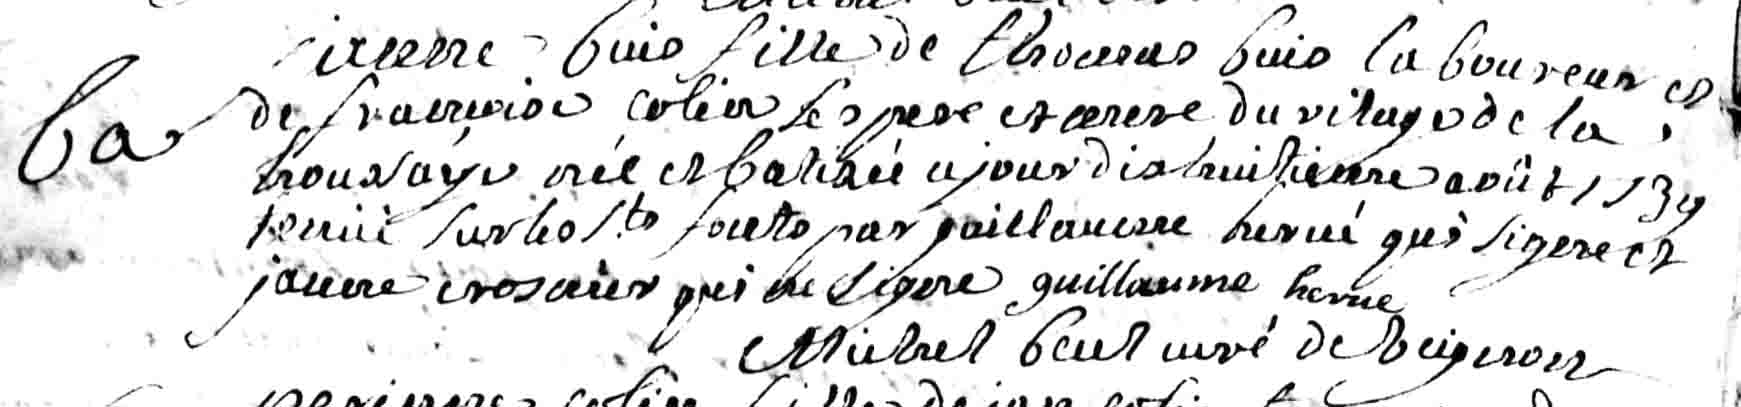 jeanne buis fille de thomas buis laboureur et
ba
de francoise colin ses pere et mere du vilage de la
houssaye née et batisée ajourdis huitieme août 1739
tenüe sur les sts fonts par guillaume hervé qui signe et
jeanne qui ne signe guillaume herve
Michel curé de
colin fille de jan colin